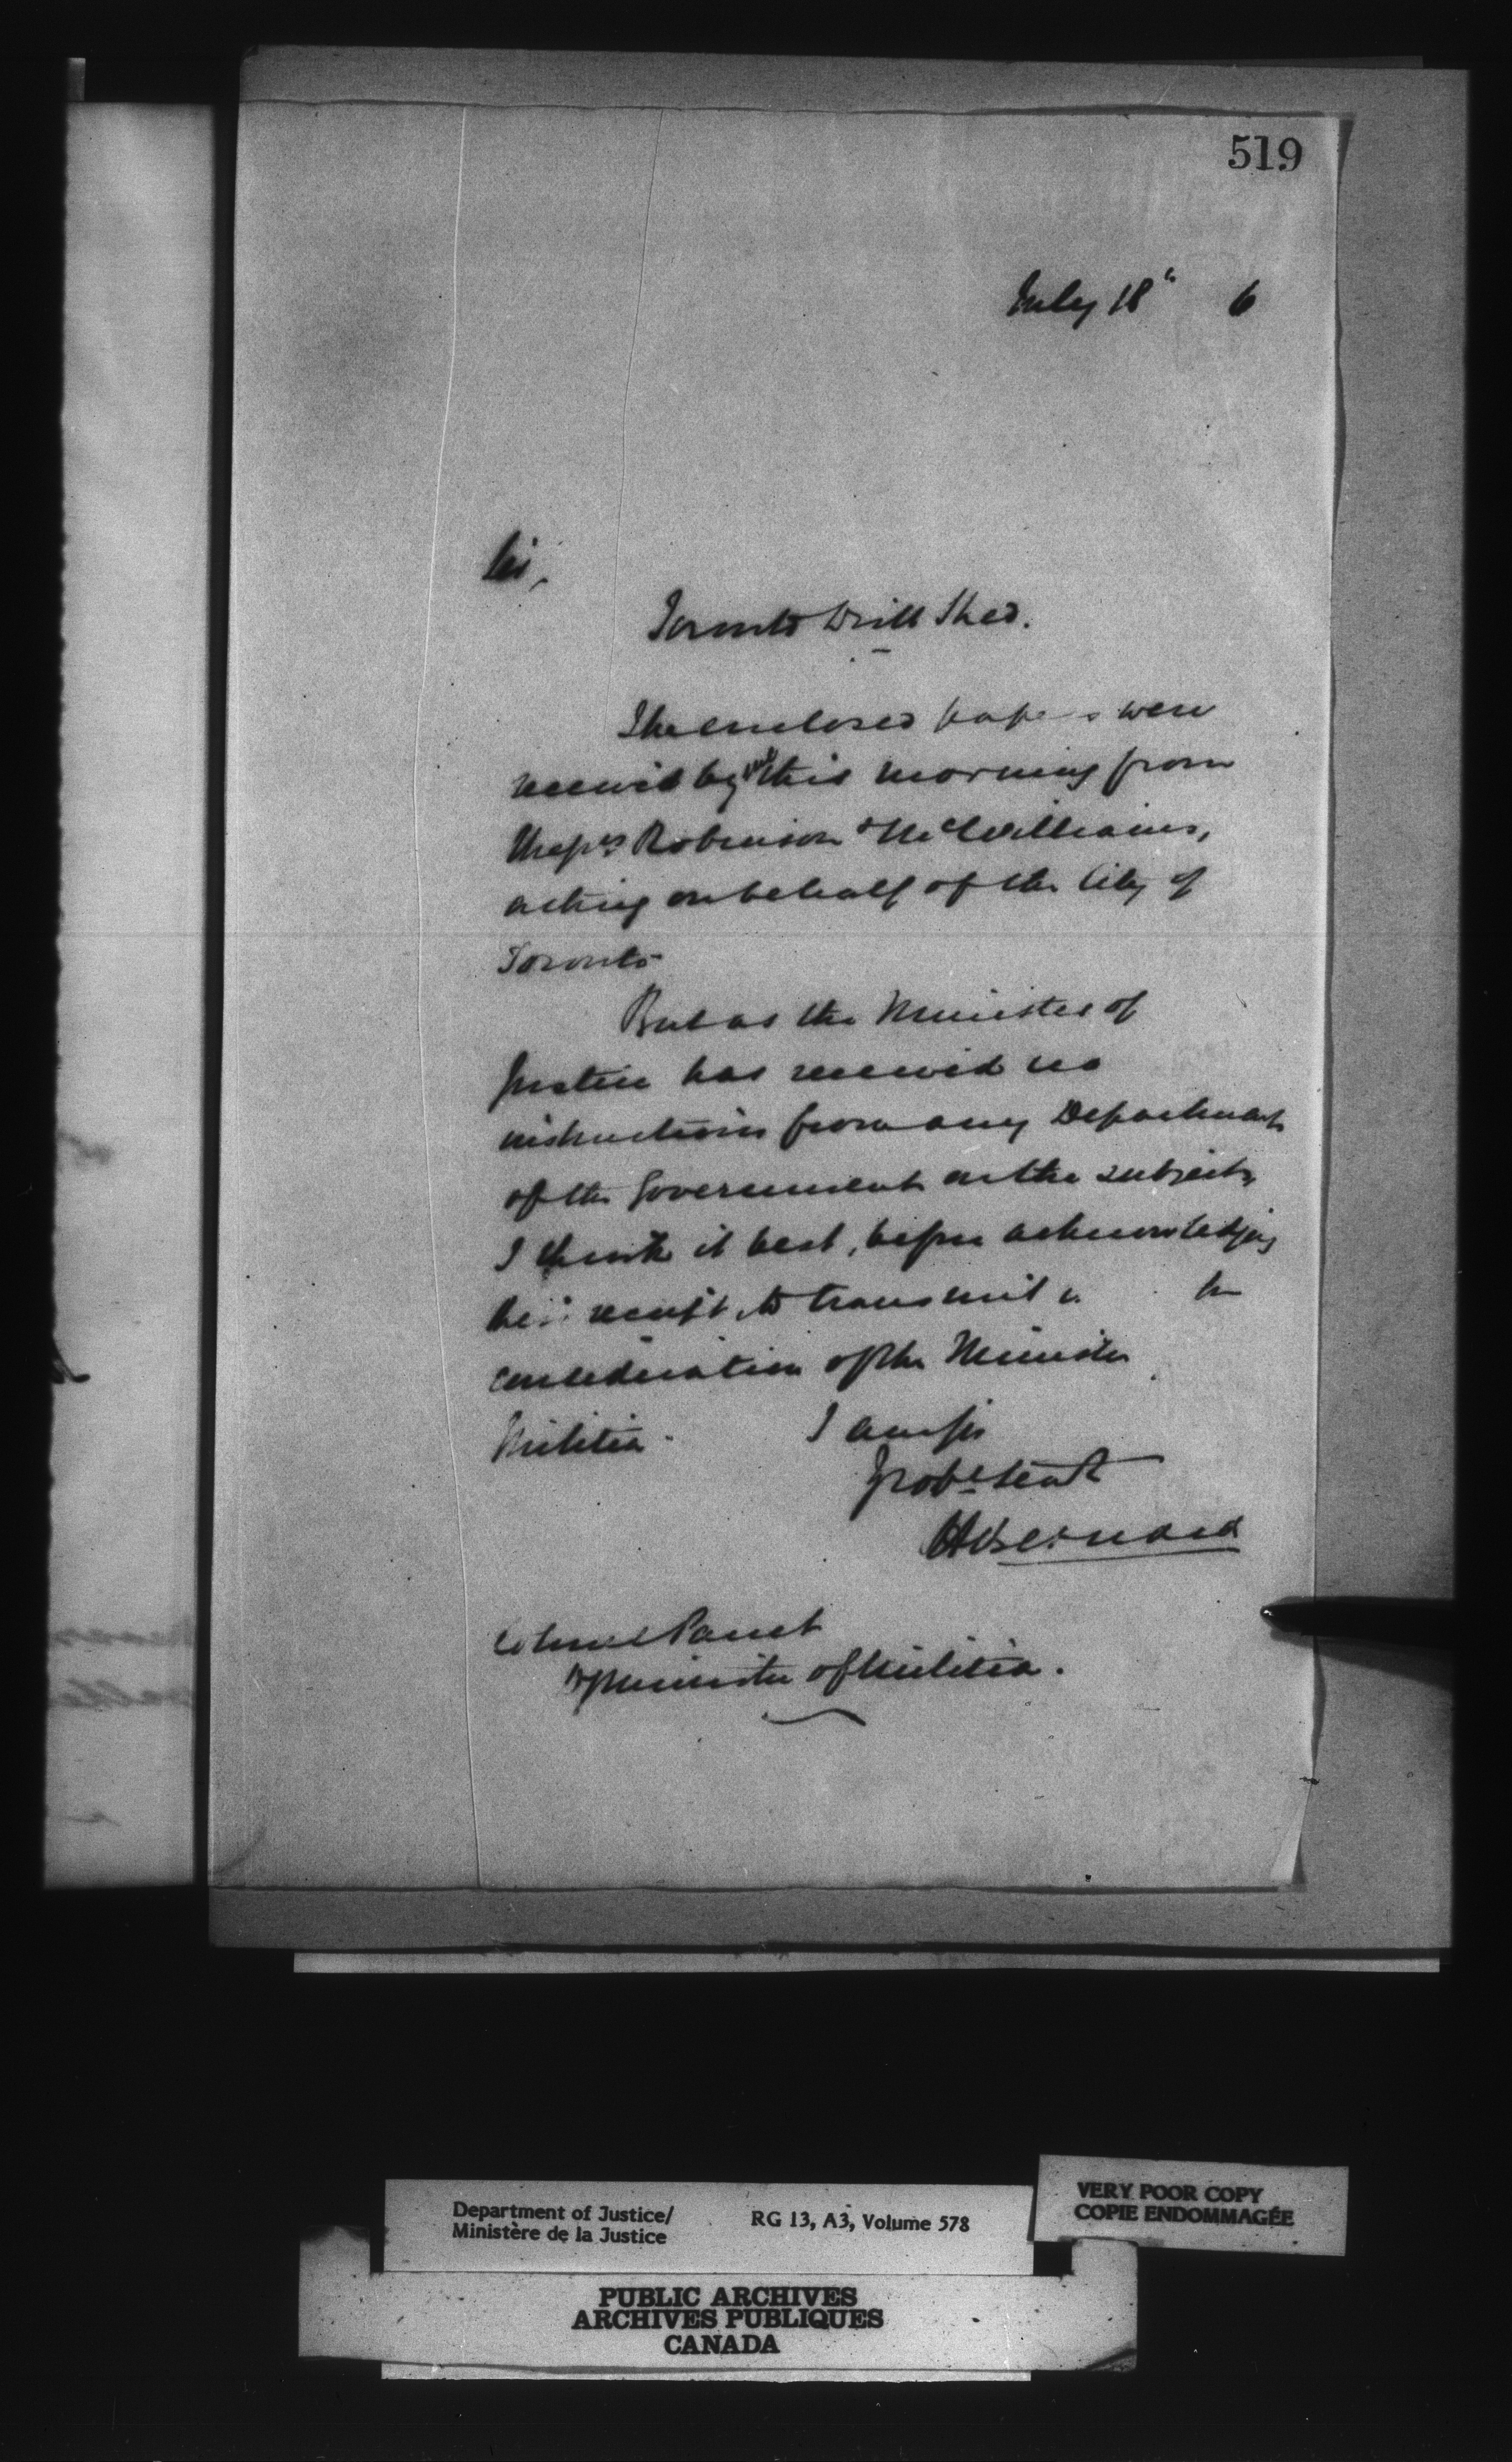 519
July 18th 6
Sir,
Toronto Drill Shed.
The enclosed papers were
received by me this morning from
Messrs Robinson & McWilliams,
acting on behalf of the City of
Toronto
But as the Minister of
Justice has received no
instructions from any Department
of the Government on the subject,
I think it best, before acknowledging
receipt, to transmit
consideration of the Minister
Militia. I am Sir
Yr obt servt
H Bernard
Colonel Panet
D Minister of Militia.
Department of Justice/
Ministère de la Justice
RG 13, A3, Volume 578
VERY POOR COPY
COPIE ENDOMMAGÉE
PUBLIC ARCHIVES
ARCHIVES PUBLIQUES
CANADA